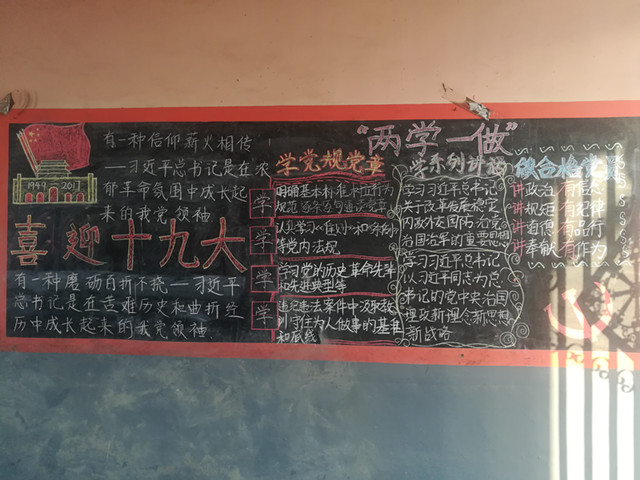 1949 2017
有一种信仰薪火相传
—习近平总书记是在浓
郁革命氛围中成长起
来的我党领袖
喜迎十九大
有一种魔力百折不挠—习近平
总书记是在苦难历史和曲折经
历中成长起来的我党领袖
“两学一做”
学党规党章
学
明确基本标准树立行为
规范逐条逐句通读党章
学
认真学习《准则》和《条例》
等党内法规
学
学习党的历史革命先辈
和先进典型等
学
违纪违法条件中汲取教
训守住为人做事的基准
和底线
学系列讲话
学习习近平总书记
关于改革发展稳定
内政外交国防治党
治国治军的重要思想
学习习近平总书记
以习近平同志为总
书记的党中央治国
理政新理念新思想
新战略
做合格党员
讲政治有信
讲规矩有纪律
讲道德有品行
讲奉献有作为